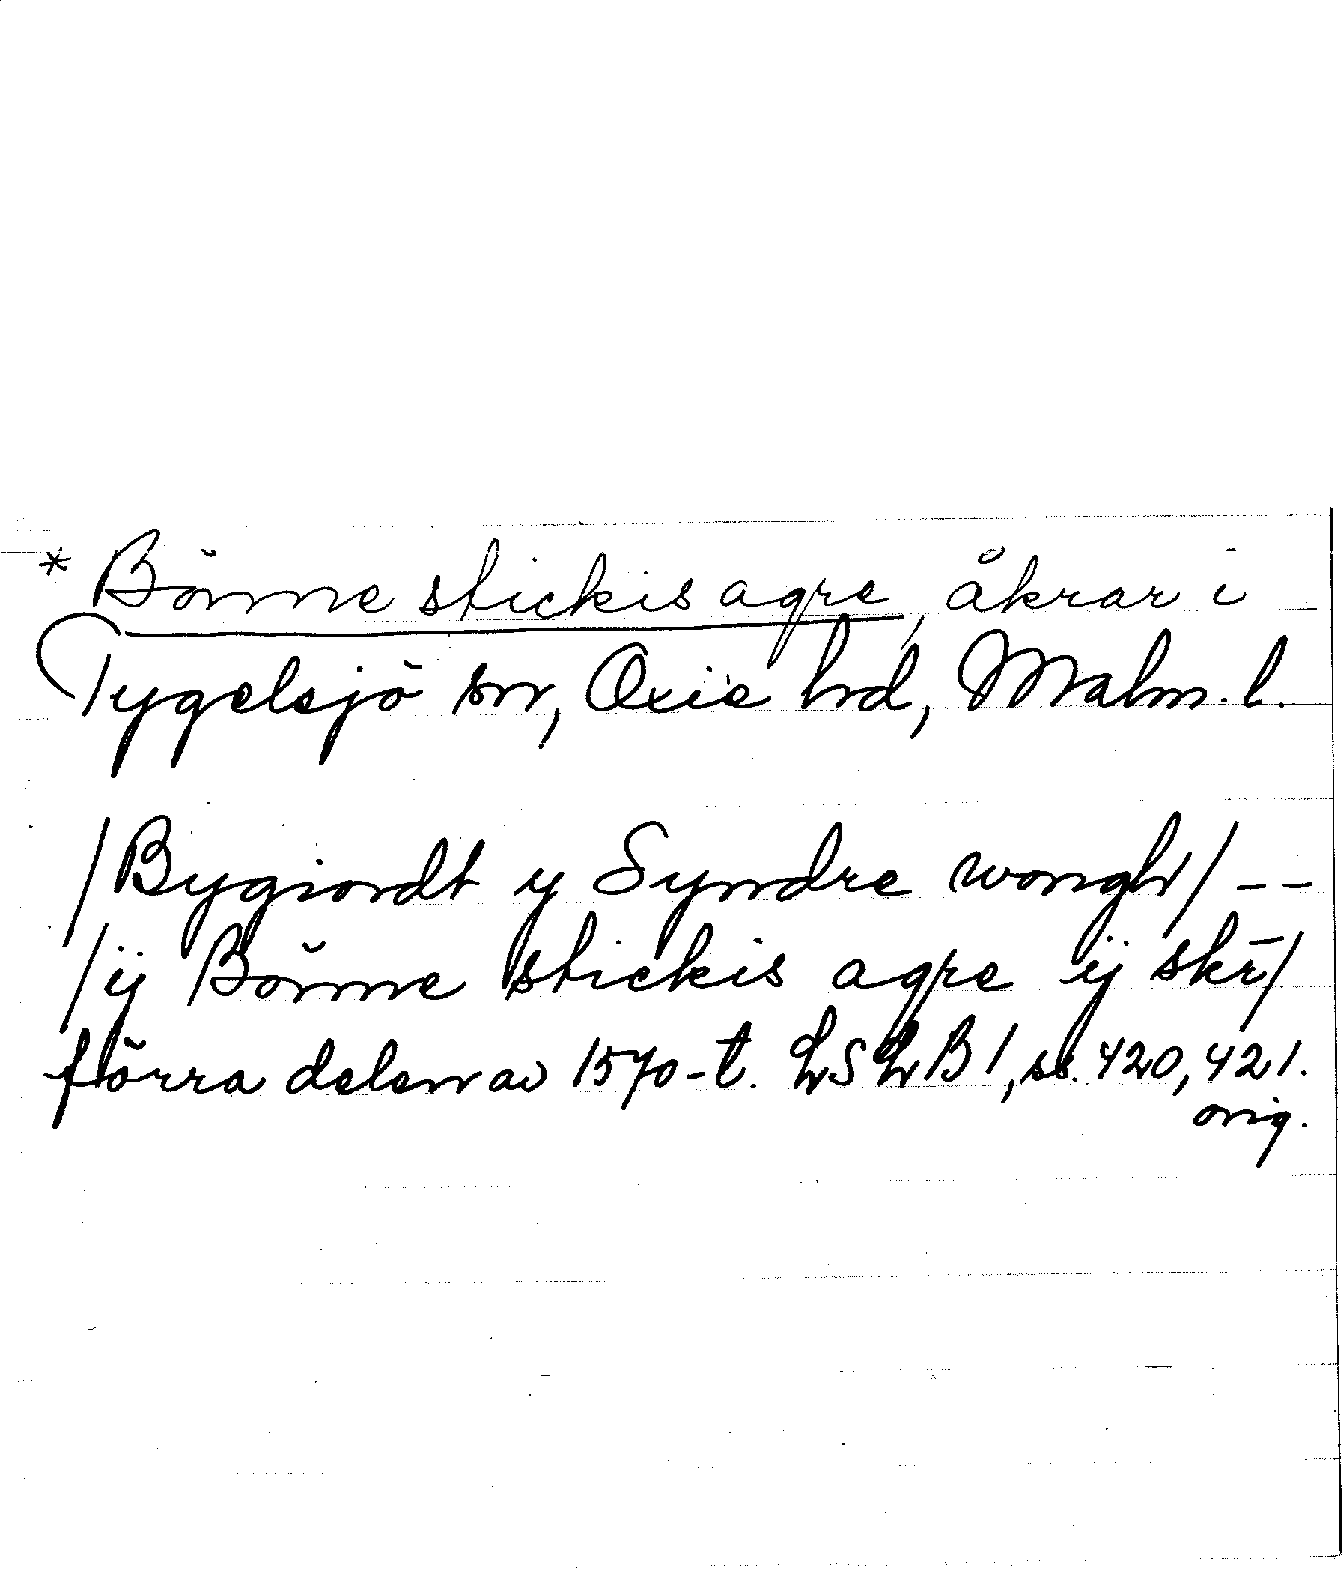 * Börne stickis agre, åkrar i
Tygelsjö sn, Oxie hd, Malm. l.
/Bygiordt y Syndre wongh/ --
/ij Börne stickis agre ij skr̄/
förra delen av 1570-t. LSLB 1, ss. 420, 421.
orig.